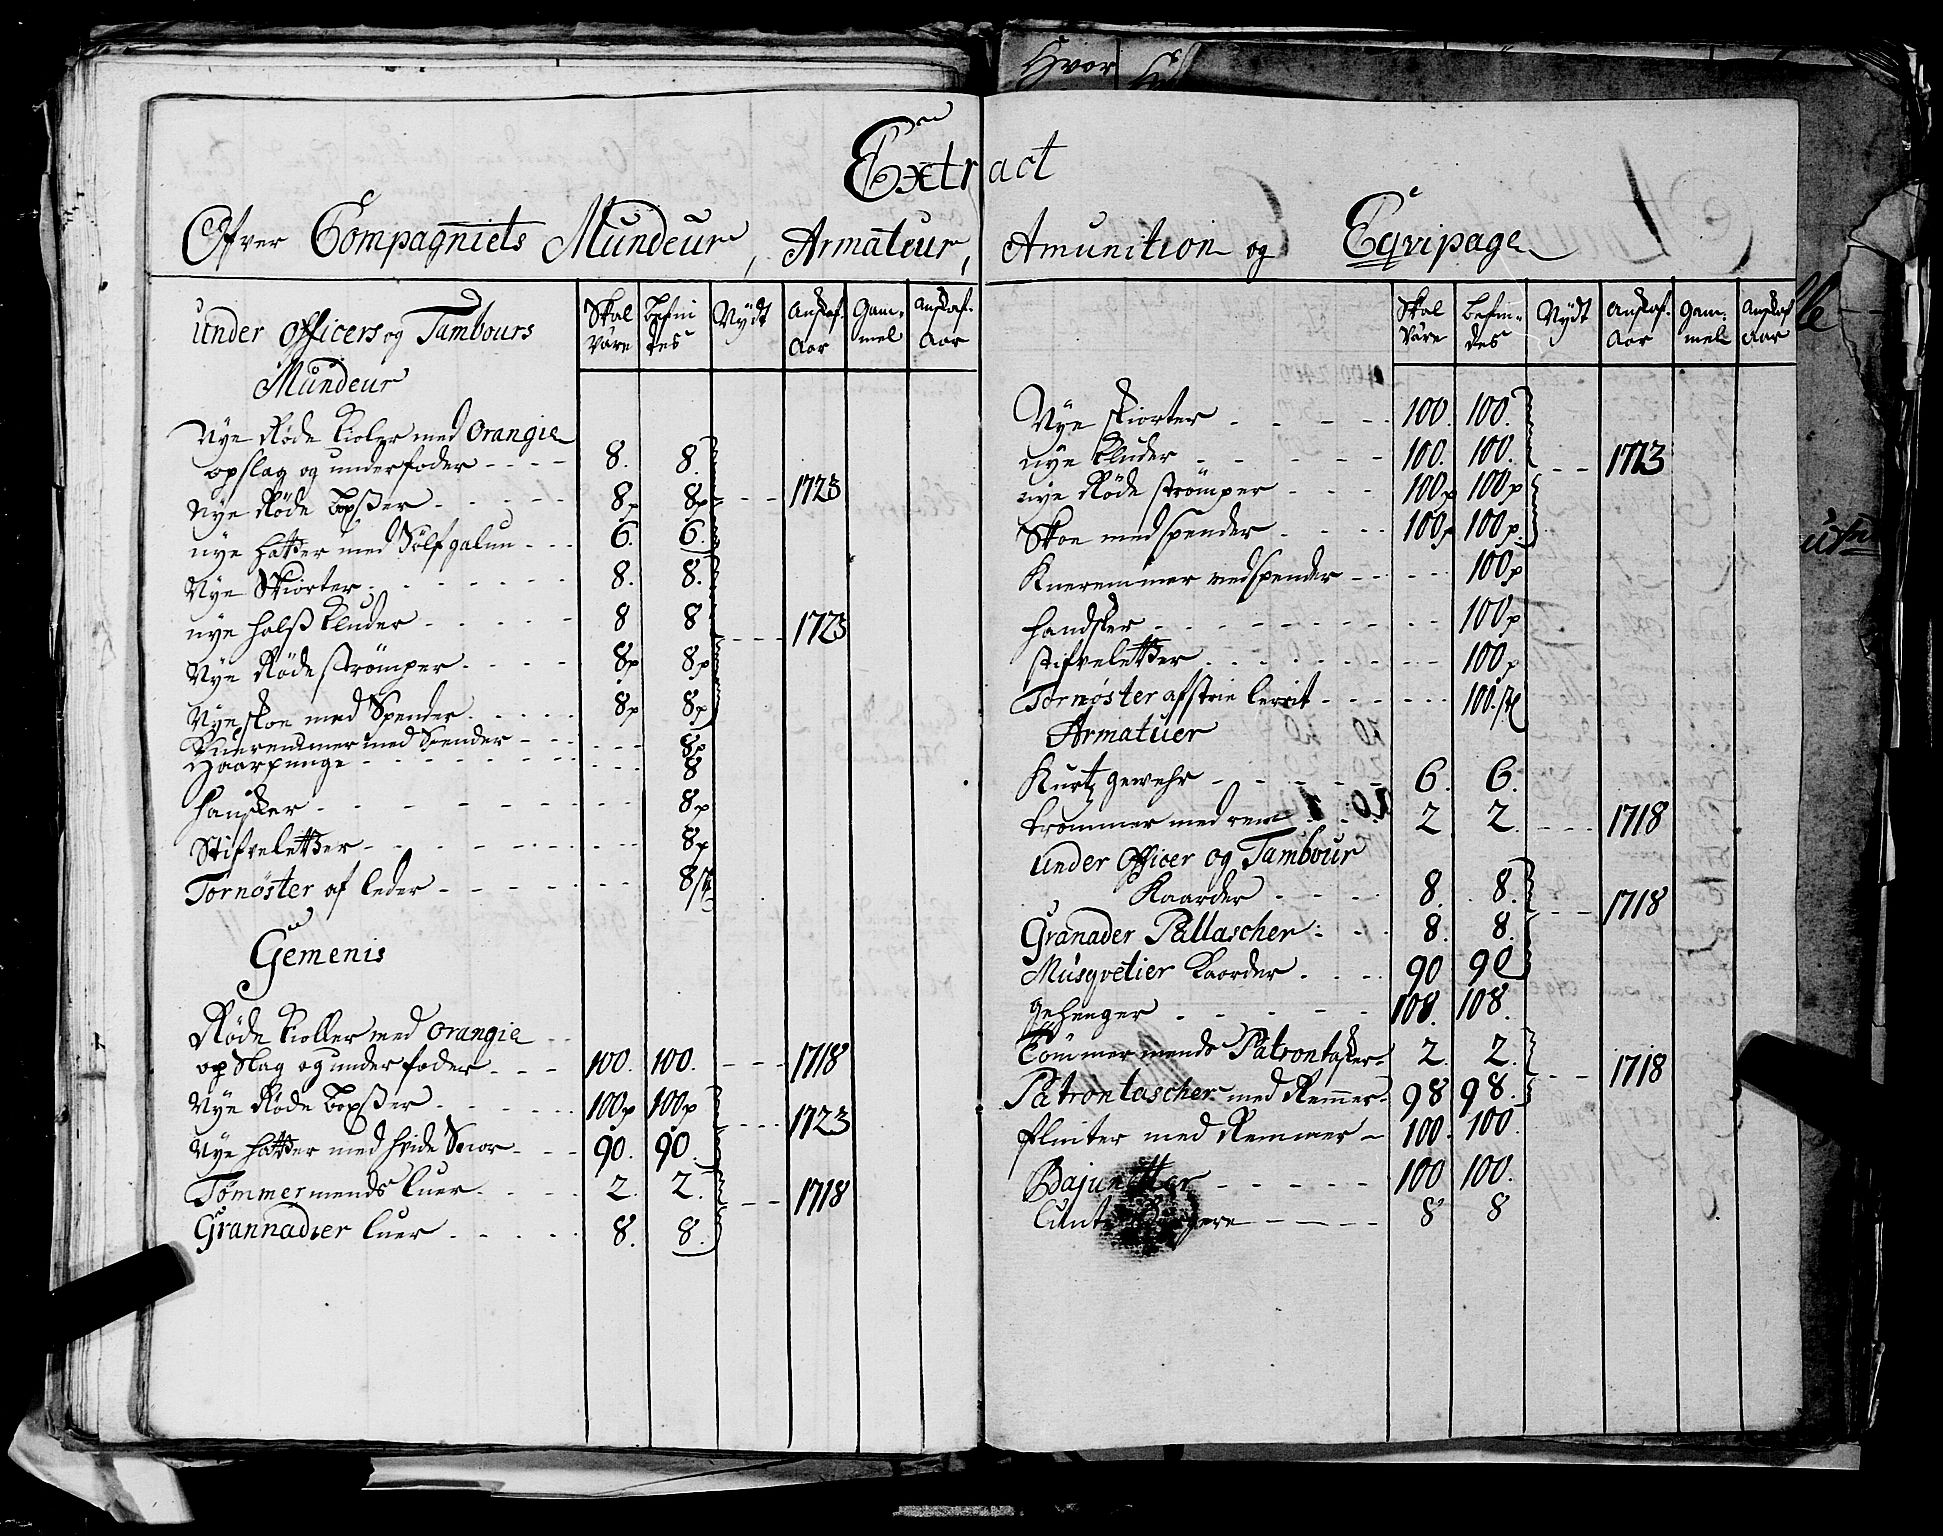 Extract
Ofver Compagniets Mundeur, Armateur, Amunition og Eqvipage
under officers og Tambours
Skal være
befindes
Nÿdt
Anskaf. Aar
Gammel
Anskaf. Aar
Mundeur
Nÿe Röde Kioler med Orangie
opslag og underfoder - - - - 8. 8.
Nÿe Röde boxßer - - - - 8p 8p - - - 1723
nÿe hatter med Sölf galun - - - 6. 6.
Nÿe Skiorter - - - - - 8. 8.
nÿe halß Kluder - - - - 8 8 - - - 1723
Nÿe Röde strömper - - - - 8p 8p
Nÿe skoe med Spender - - - - 8p 8p
Kneremmer med Spender - - - - 8p
Haarpunge - - - - - 8
Hansker - - - - - 8p
Stifveletter - - - - - 8p
Tornöster af leder - - - - 8 stk
Gemenis
Röde Kioller med orangie - -
opslag og underfoder - - - 100. 100. - - - 1718
Nÿe Röde boxßer - - - - 100p 100p
Nÿe hatter med hvide Snor - - - 90. 90. - - - 1723
Tømmermends luer - - - - 2. 2. - - - 1718
Grannadier luer - - - - 8. 8.
Hvor
Skal være
befindes
Nÿdt
Anskaf. Aar
Gammel
Anskaf Aar
Nÿe skiorter - - - - 100. 100.
nÿe Kluder - - - - 100. 100. - - 1723
nÿe Röde strömper - - - 100p 100p
Skoe med spender - - - - 100p 100p
Kneremmer med spender - - - - 100p
handsker - - - - - - 100p
stifveletter - - - - - - 100p
Tornøster af strie lerrit - - - - 100. stk
Armatuer
Kurtz gewehr - - - - - 6. 6.
trommer med rem - - - 2 2. - - - 1718
under Officer og Tambour
Kaarder - - - - 8. 8.
Granader Pallascher - - - 8. 8. - - - 1718
Musqvetier Kaarder - - - - 90 90
gehenger - - - - - 108. 108.
Tömmermends Patrontasker - 2. 2.
Patrontascher med Remmer - 98 98. - - - 1718
flinter med Remmer - 100. 100.
Bajunetter - - - - - 100 100.
8 8